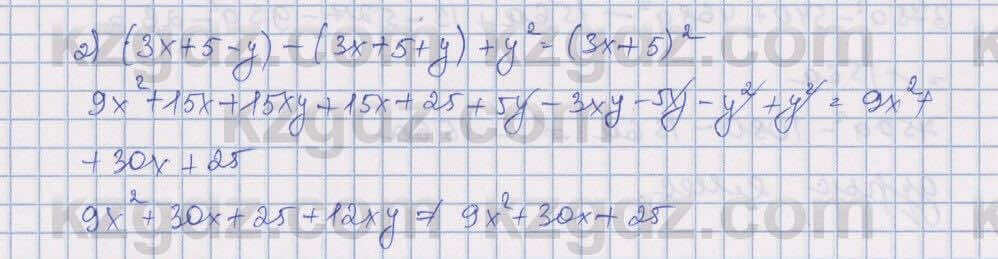 2) (3x+5-y)-(3x+5+y)+y²=(3x+5)²
9x²+15x+15xy+15x+25+5y-3xy-5y-y²+y²=9x²+
+30x+25
9x²+30x+25+12xy≠9x²+30x+25
kzgdz.com